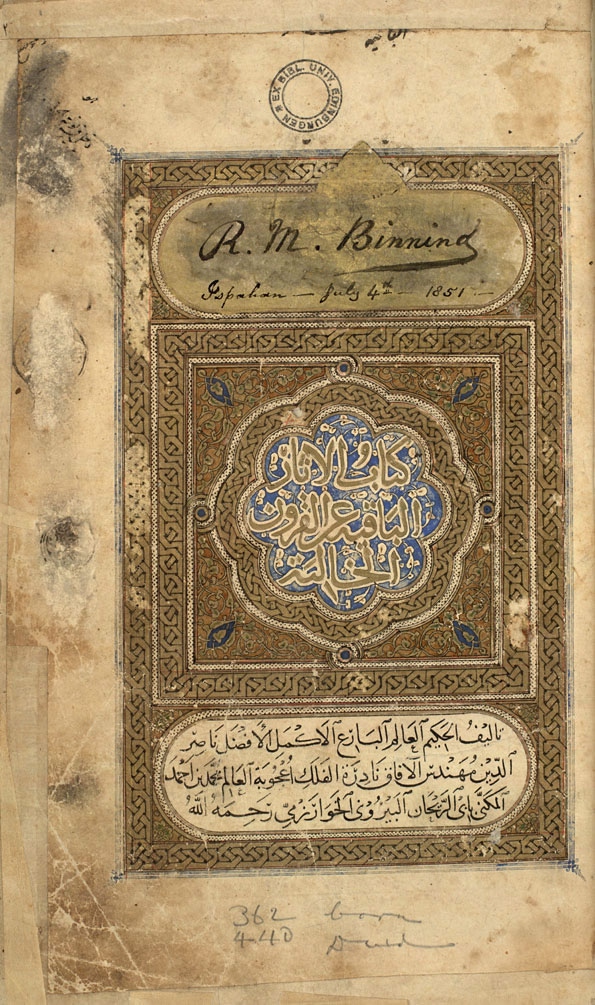 EX. BIBL. UNIV. EDINBURGEN
R. M. Binning
Ispahan — July 4th — 1851 —
كتاب الاثار
الباقية عن القرون
الخالية
تاليف الحكيم العالم البارع الاكمل الافضل ناصر
الدين مهندس الآفاق نادرة الفلك اعجوبة العالم محمد بن احمد
المكنى بابى الريحان البيرونى الخوارزمى رحمه الله
362 born
440 Died